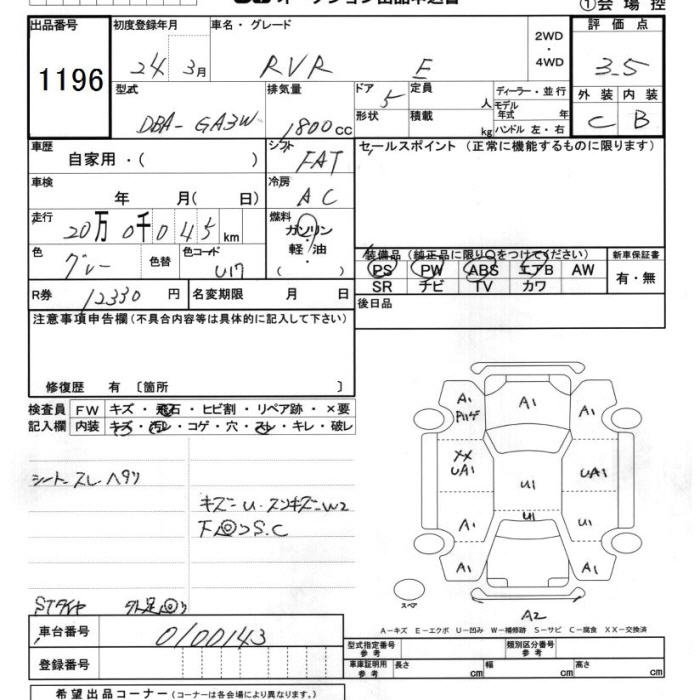 ①会 場 控
出品番号
1196
初度登録年月
24 3月
車名・グレード
RVR E
2WD
・
4WD
評 価 点
3.5
外 装 内 装
C B
型式
DBA- GA3W
排気量
1800cc
ドア 5
形状
定員 人
積載 kg
ディーラー・並 行
モデル
年式 年
ハンドル 左・右
車歴
自家用・( )
シフト
FAT
セールスポイント (正常に機能するものに限ります)
車検
年 月( 日)
冷房
AC
走行
20万 0千 0 4 5 km
燃料
ガソリン
軽・油
( )
色
グレー
色替
色コード
U17
装備品 (純正品に限り○をつけてください)
PS PW ABS エアB AW
SR ナビ TV カワ
新車保証書
有・無
R券 12330 円
名変期限 月 日
後日品
注意事項申告欄(不具合内容等は具体的に記入して下さい)
修復歴 有 〔箇所 〕
検査員 FW キズ・飛石・ヒビ割・リペア跡・×要
記入欄 内装 キズ・汚レ・コゲ・穴・スレ・キレ・破レ
シートスレ ヘタリ
キズ=U・スンキズ=W2
下 S.C
STタイヤ
A1
A1
A1
XX
UA1
U1
UA1
A1
U1
U1
A1
A1
スペア
A2
A-キズ E-エクボ U-凹み W-補修跡 S-サビ C-腐食 XX-交換済
車台番号 0100143
登録番号
型式指定番号
参 考
類別区分番号
参 考
車庫証明用
参 考
長さ cm 幅 cm 高さ cm
希望出品コーナー (コーナーは各会場により異なります。)